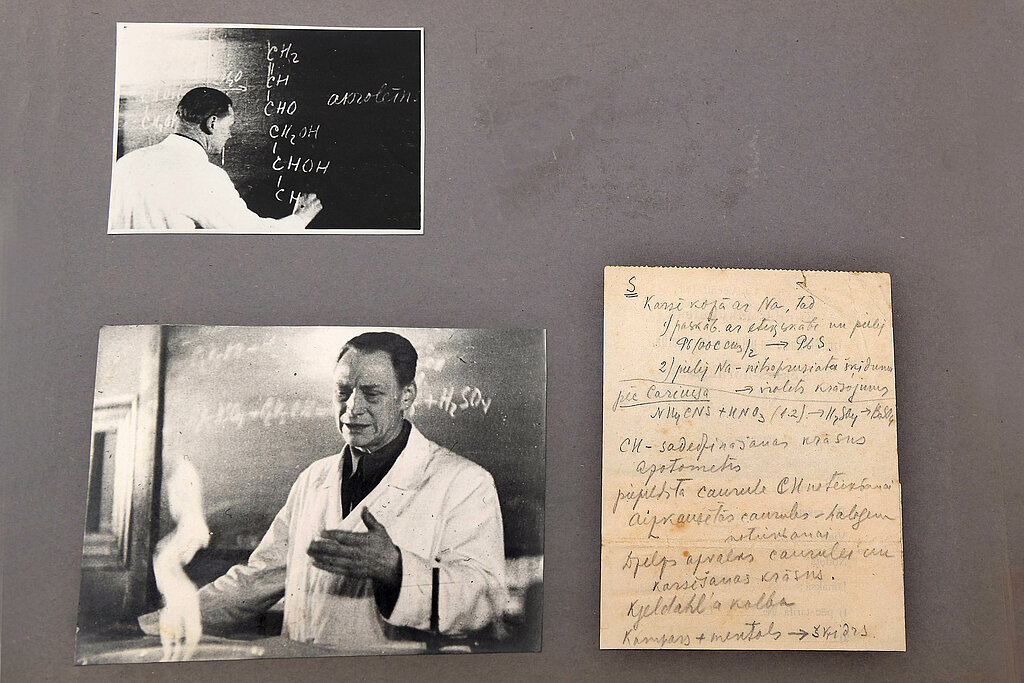 CH₂
CH
CHO
CH₂OH
CHOH
CH
+ H₂SO₄
S
Karsē kopā ar Na, tad
1) paskāb. ar etiķskābi un pielej
Pb(OOCCH₃)₂ → PbS.
2) pielej Na-nitroprusiāta šķīdumu
pēc Cariusa → violets krāsojums
NH₄CNS + HNO₃ (1.2) → H₂SO₄ → BaSO₄
CH - sadedzināšanas krāsns
azotometrs
piepildīta caurule CH noteikšanai
Aizkausētas caurules - halogenu
noteikšanai
Dzelzs apvalks caurulei un
Karsēšanas krāsns.
Kjeldahl'a kolba
Kampars + mentols → šķidrs.